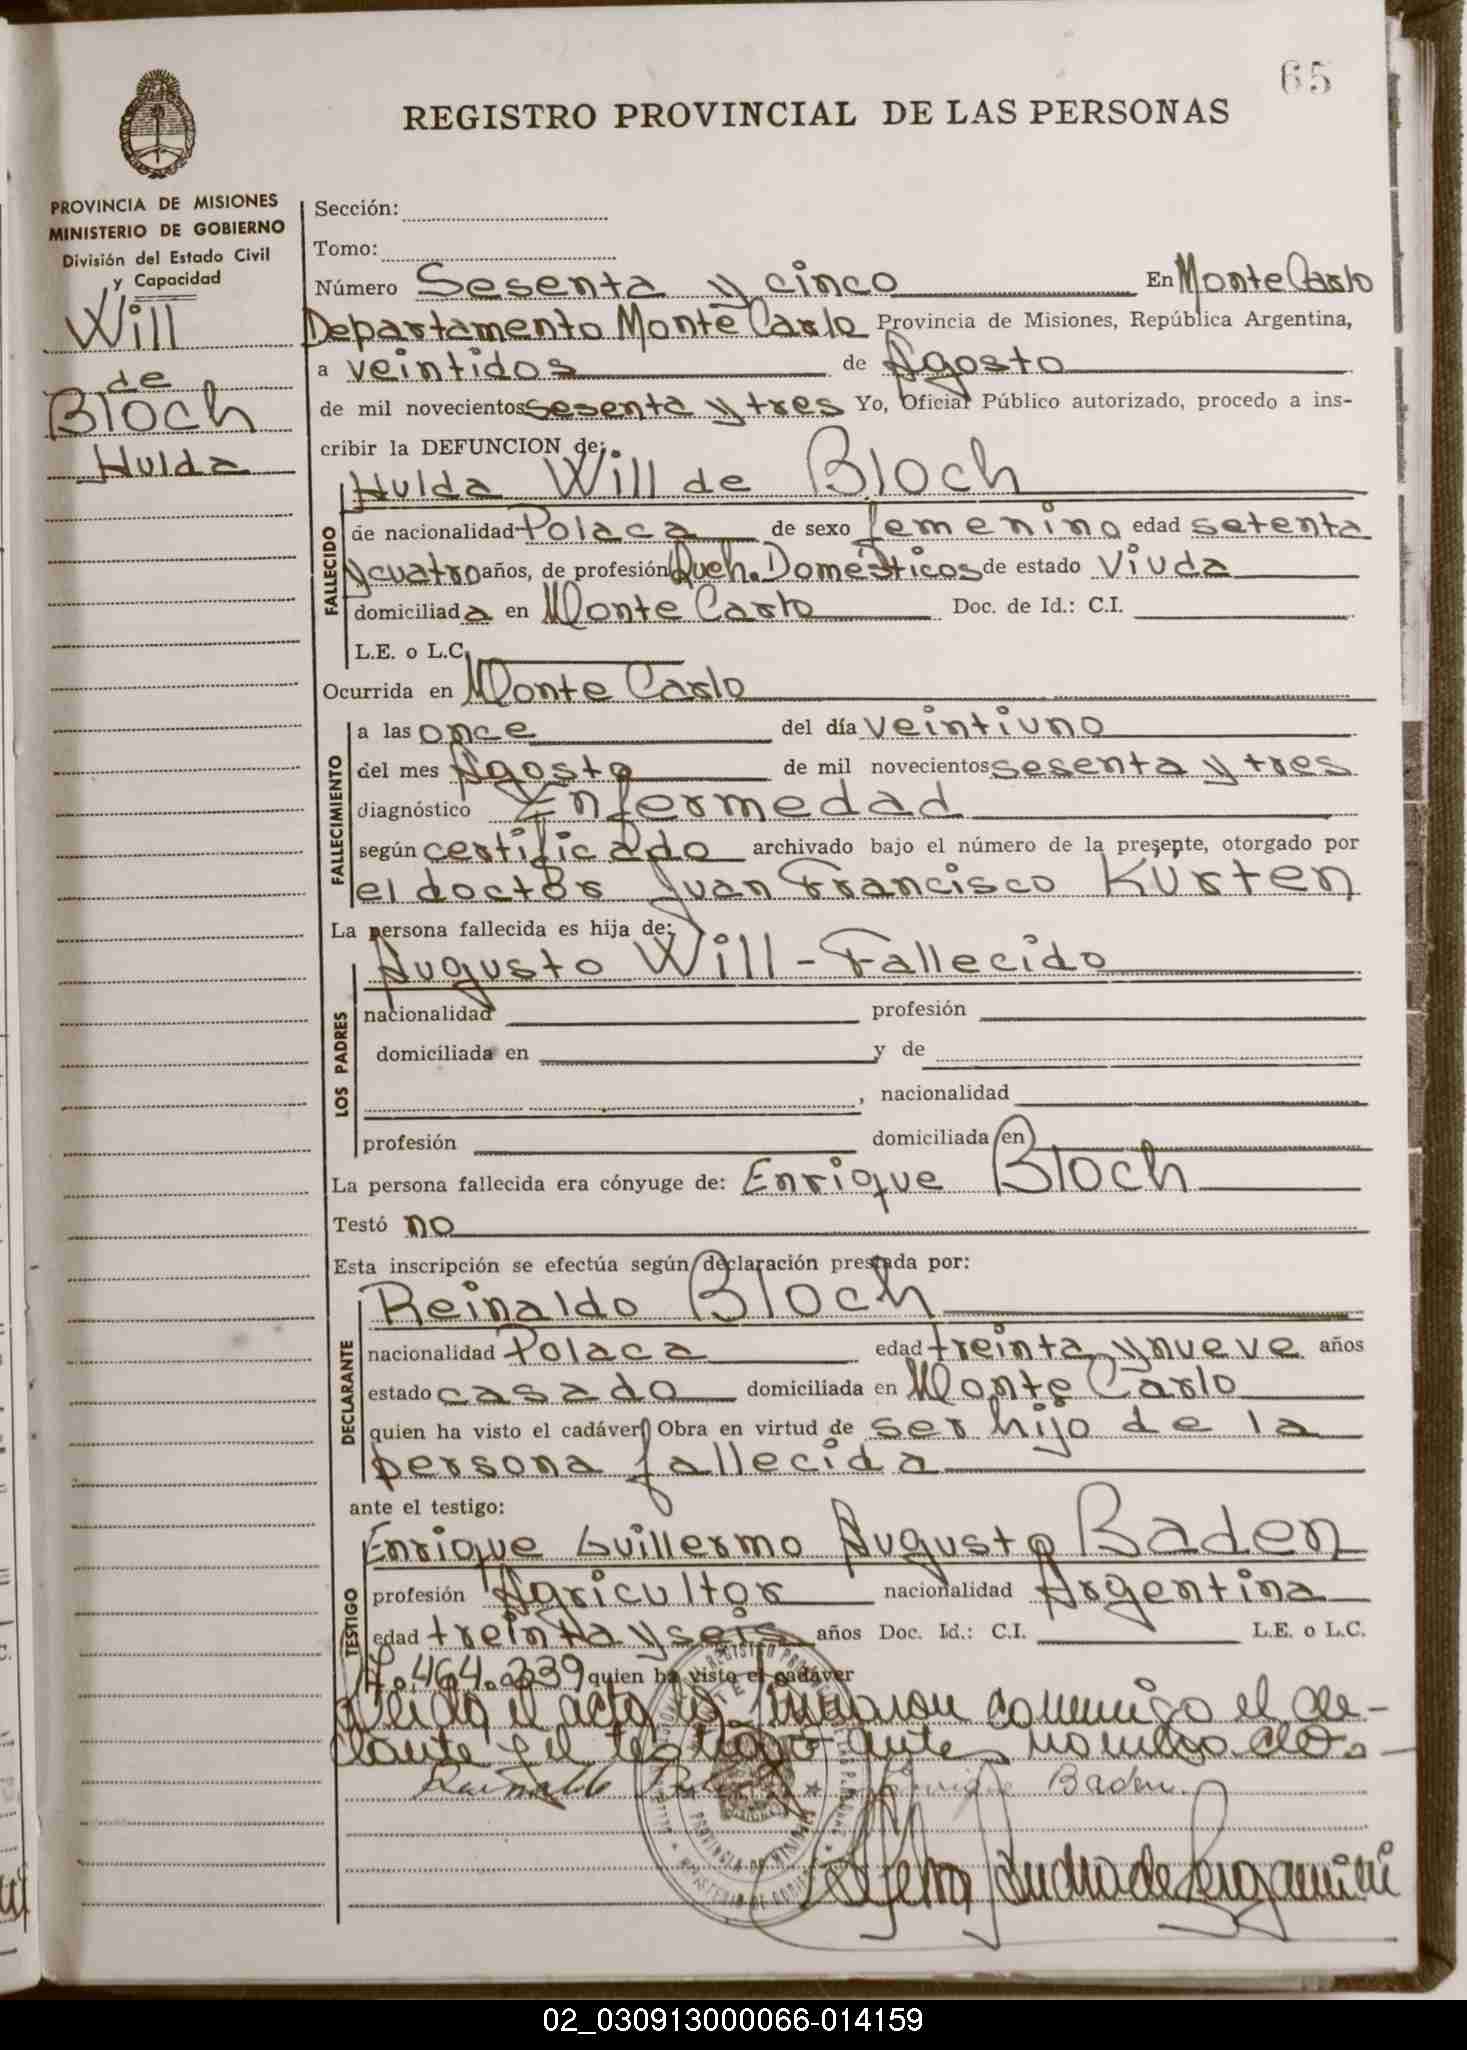 65
REGISTRO PROVINCIAL DE LAS PERSONAS
PROVINCIA DE MISIONES
MINISTERIO DE GOBIERNO
División del Estado Civil
y Capacidad
Will
de
Bloch
Hulda
Sección:
Tomo:
Número Sesenta y cinco En Monte Carlo
Departamento Monte Carlo Provincia de Misiones, República Argentina,
a veintidos de Agosto
de mil novecientos sesenta y tres Yo, Oficial Público autorizado, procedo a ins-
cribir la DEFUNCION de:
Hulda Will de Bloch
FALLECIDO
de nacionalidad Polaca de sexo femenino edad setenta
y cuatro años, de profesión Queh. Domésticos de estado Viuda
domiciliada en Monte Carlo Doc. de Id.: C.I.
L.E. o L.C.
Ocurrida en Monte Carlo
FALLECIMIENTO
a las once del día veintiuno
del mes Agosto de mil novecientos sesenta y tres
diagnóstico Enfermedad
según certificado archivado bajo el número de la presente, otorgado por
el doctor Juan Francisco Kurten
La persona fallecida es hija de:
Augusto Will - Fallecido
LOS PADRES
nacionalidad profesión
domiciliada en y de
, nacionalidad
profesión domiciliada en
La persona fallecida era cónyuge de: Enrique Bloch
Testó no
Esta inscripción se efectúa según declaración prestada por:
Reinaldo Bloch
DECLARANTE
nacionalidad Polaca edad treinta y nueve años
estado casado domiciliada en Monte Carlo
quien ha visto el cadáver. Obra en virtud de ser hijo de la
persona fallecida
ante el testigo:
Enrique Guillermo Augusto Baden
TESTIGO
profesión Agricultor nacionalidad Argentina
edad treinta y seis años Doc. Id.: C.I. L.E. o L.C.
7.464.339 quien ha visto el cadáver
Leida el acta la firmaron conmigo el de-
clarante y el testigo antes nombrado.-
Reinaldo Bloch Enrique Baden
02_030913000066-014159